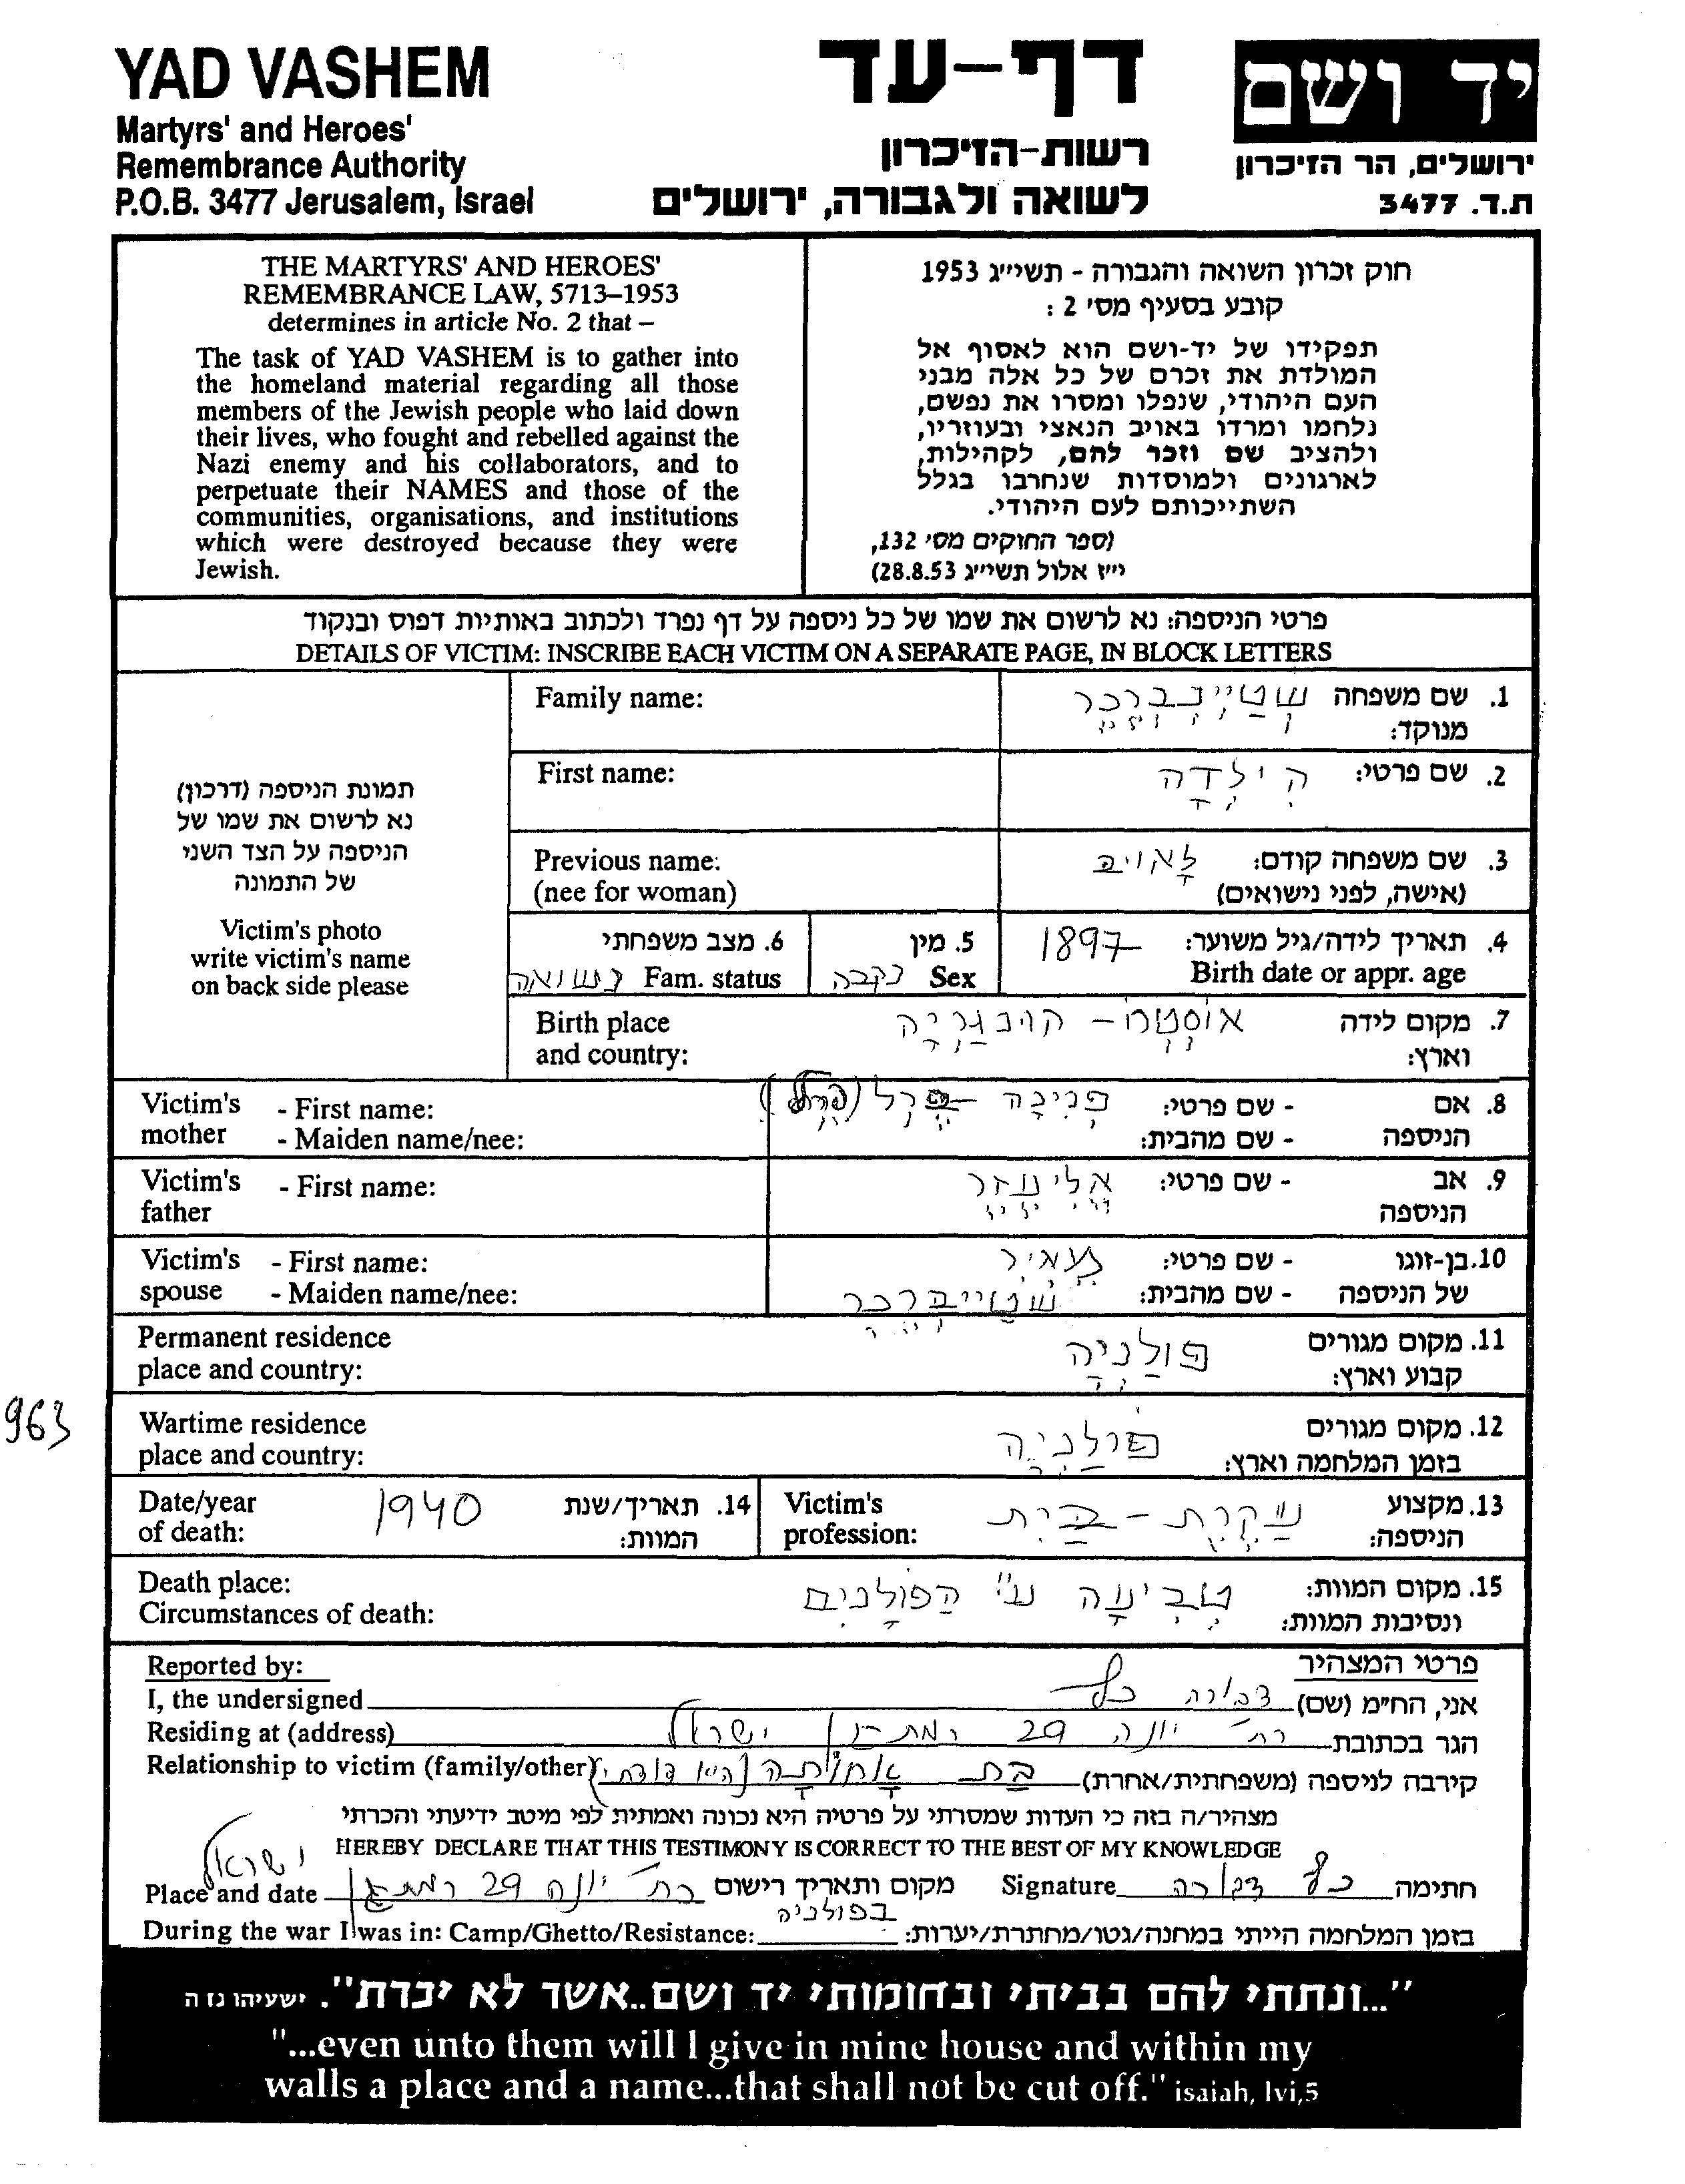 YAD VASHEM
Martyrs' and Heroes'
Remembrance Authority
P.O.B. 3477 Jerusalem, Israel
דף-עד
רשות-הזיכרון
לשואה ולגבורה, ירושלים
יד ושם
ירושלים, הר הזיכרון
ת.ד. 3477
THE MARTYRS' AND HEROES'
REMEMBRANCE LAW, 5713–1953
determines in article No. 2 that –
The task of YAD VASHEM is to gather into
the homeland material regarding all those
members of the Jewish people who laid down
their lives, who fought and rebelled against the
Nazi enemy and his collaborators, and to
perpetuate their NAMES and those of the
communities, organisations, and institutions
which were destroyed because they were
Jewish.
חוק זכרון השואה והגבורה - תשי״ג 1953
קובע בסעיף מס׳ 2 :
תפקידו של יד-ושם הוא לאסוף אל
המולדת את זכרם של כל אלה מבני
העם היהודי, שנפלו ומסרו את נפשם,
נלחמו ומרדו באויב הנאצי ובעוזריו,
ולהציב שם וזכר להם, לקהילות,
לארגונים ולמוסדות שנחרבו בגלל
השתייכותם לעם היהודי.
(ספר החוקים מס׳ 132,
י״ז אלול תשי״ג 28.8.53)
פרטי הניספה: נא לרשום את שמו של כל ניספה על דף נפרד ולכתוב באותיות דפוס ובנקוד
DETAILS OF VICTIM: INSCRIBE EACH VICTIM ON A SEPARATE PAGE, IN BLOCK LETTERS
תמונת הניספה (דרכון)
נא לרשום את שמו של
הניספה על הצד השני
של התמונה
Victim's photo
write victim's name
on back side please
Family name:
1. שם משפחה שטיינברכר
מנוקד:
First name:
2. שם פרטי: הילדה
Previous name:
(nee for woman)
3. שם משפחה קודם: לאויב
(אישה, לפני נישואים)
4. תאריך לידה/גיל משוער: 1897
Birth date or appr. age
5. מין
Sex נקבה
6. מצב משפחתי
Fam. status נשואה
Birth place
and country:
7. מקום לידה אוסטרו - הונגריה
וארץ:
Victim's mother - First name:
- Maiden name/nee:
8. אם הניספה - שם פרטי: פנינה - פרל
- שם מהבית:
Victim's father - First name:
9. אב הניספה - שם פרטי: אליעזר
Victim's spouse - First name:
- Maiden name/nee:
10. בן-זוגו - שם פרטי:
של הניספה - שם מהבית: שטיינברכר
Permanent residence
place and country:
11. מקום מגורים פולניה
קבוע וארץ:
963
Wartime residence
place and country:
12. מקום מגורים פולניה
בזמן המלחמה וארץ:
Date/year
of death:
14. תאריך/שנת 1940
המוות:
Victim's
profession:
13. מקצוע עקרת-בית
הניספה:
Death place:
Circumstances of death:
15. מקום המוות: טביעה ע״י הפולנים
ונסיבות המוות:
Reported by:
פרטי המצהיר
I, the undersigned
אני, הח״מ (שם) דבורה כץ
Residing at (address)
הגר בכתובת רח׳ יונה 29 רמת-גן ישראל
Relationship to victim (family/other)
קירבה לניספה (משפחתית/אחרת) בת אחותה (היא דודתי)
מצהיר/ה בזה כי העדות שמסרתי על פרטיה היא נכונה ואמתית לפי מיטב ידיעתי והכרתי
HEREBY DECLARE THAT THIS TESTIMONY IS CORRECT TO THE BEST OF MY KNOWLEDGE
ישראל
Place and date
מקום ותאריך רישום רח׳ יונה 29 רמת גן
Signature
חתימה כץ דבורה
During the war I was in: Camp/Ghetto/Resistance:
בזמן המלחמה הייתי במחנה/גטו/מחתרת/יערות: בפולניה
"...ונתתי להם בביתי ובחומותי יד ושם..אשר לא יכרת". ישעיהו נו ה
"...even unto them will I give in mine house and within my
walls a place and a name...that shall not be cut off." isaiah, lvi,5